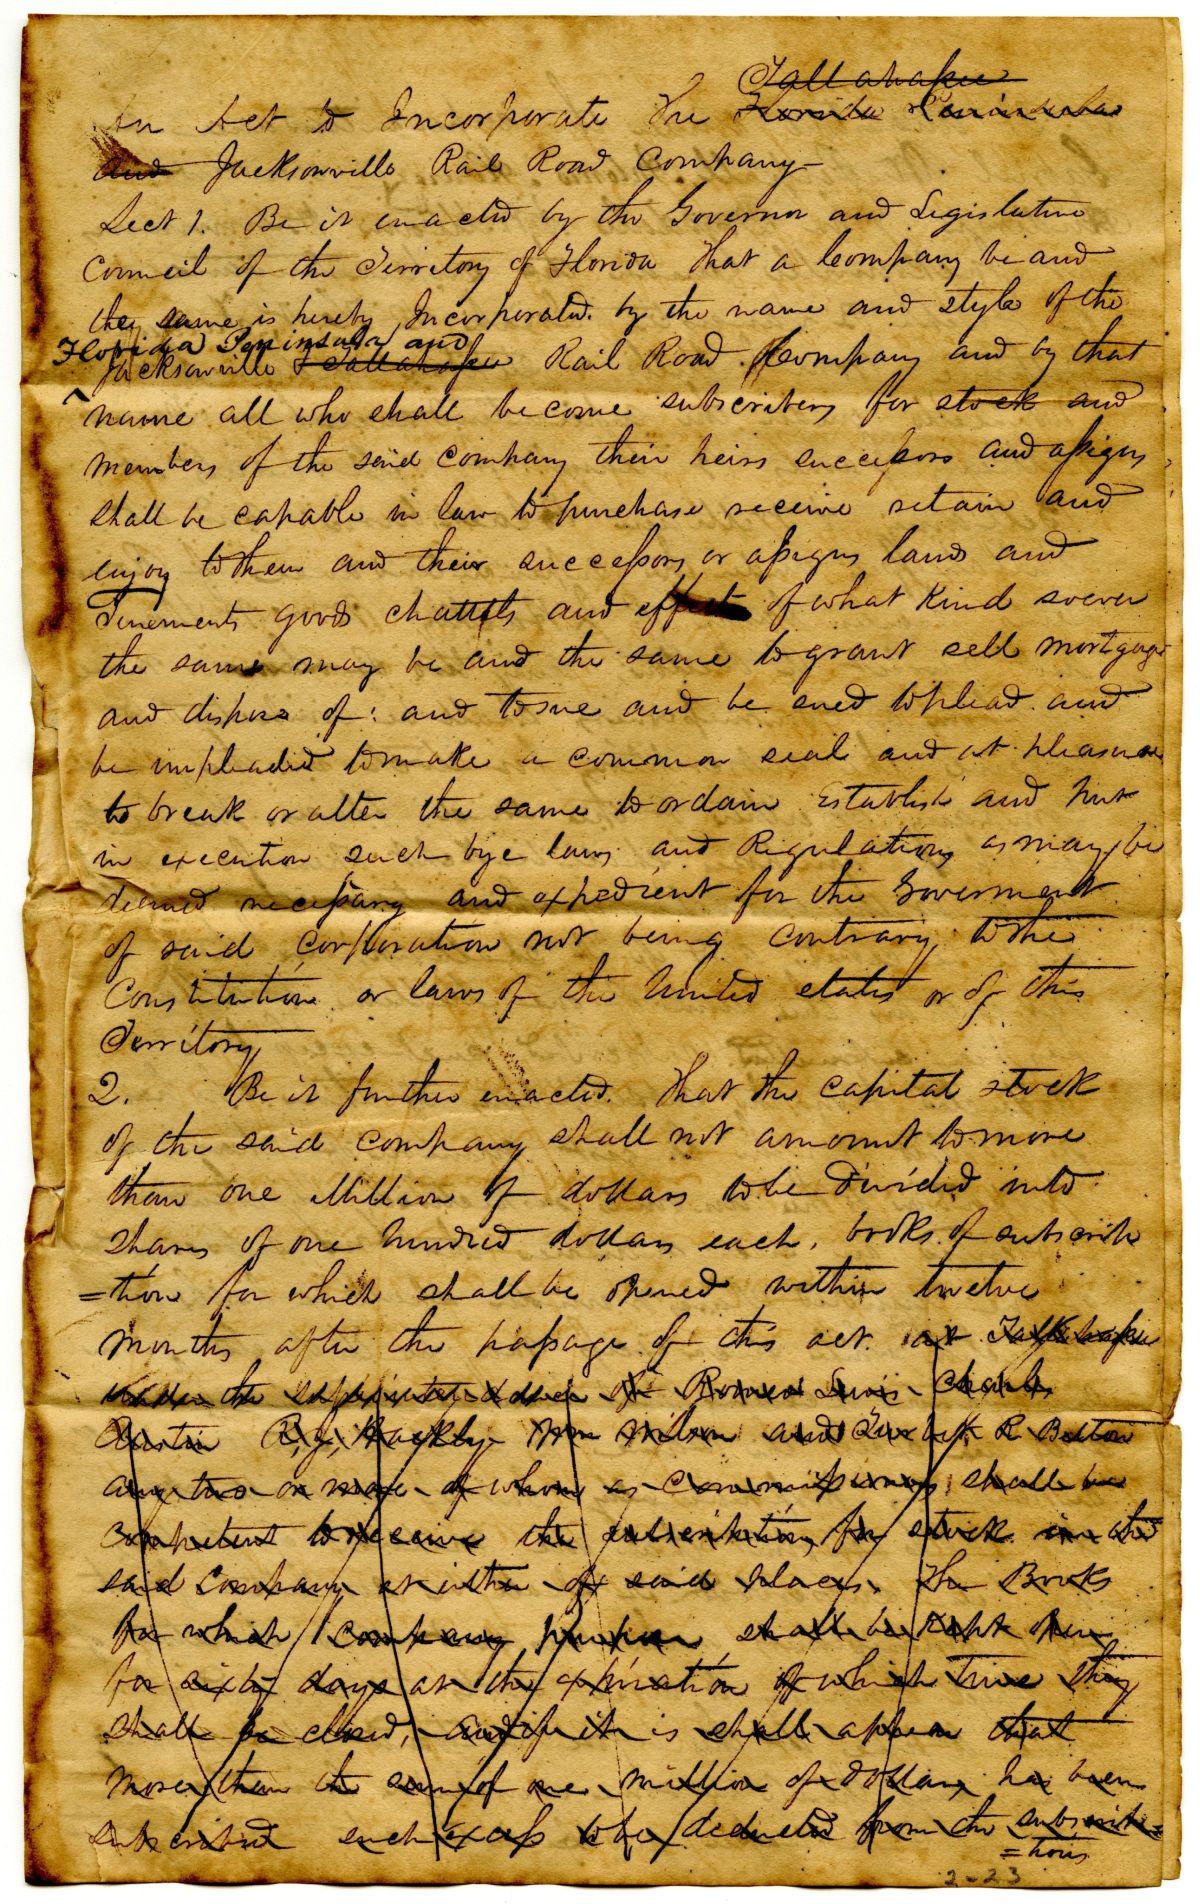 Tallahassee
An Act to Incorporate the Florida Peninsula
and Jacksonville Rail Road Company
Sect 1. Be it enacted by the Governor and Legislative
Council of the Territory of Florida That a Company be and
the same is hereby Incorporated. by the name and style of the
Florida Peninsula and
Jacksonville Tallahassee Rail Road Company and by that
name all who shall become subscribers for stock and
members of the said Company their heirs successors and assigns
shall be capable in law to purchase receive retain and
enjoy to them and their successors or assigns lands and
Tenements goods chattels and effects of what kind soever
the same may be and the same to grant sell mortgage
and dispose of: and to sue and be sued to plead and
be impleaded to make a common seal and at pleasure
to break or alter the same to ordain Establish and put
in execution such bye laws and Regulations as may be
deemed necessary and expedient for the Goverment
of said corporation not being contrary to the
Constitution or laws of the United states or of this
Territory
2. Be it further enacted. That the capital stock
of the said company shall not amount to more
than one Million of dollars to be divided into
shares of one hundred dollars each, books of subscrib
=tion for which shall be opened within twelve
months after the passage of this act. at Tallahassee
under the superintendance of Romeo Lewis Charles
Austin R. J. Hackley Wm Wilson and Turbutt R Betton
any two or more of whom as Commissioners shall be
competent to receive the subscription for stock in the
said Company at either of said places. The Books
for which company purpose shall be kept open
for sixty days at the expiration of which time they
shall be closed, and if it is shall appear that
more than the sum of one million of dollars has been
subscribed such excess to be deducted from the subscrib=
=tions
2-23